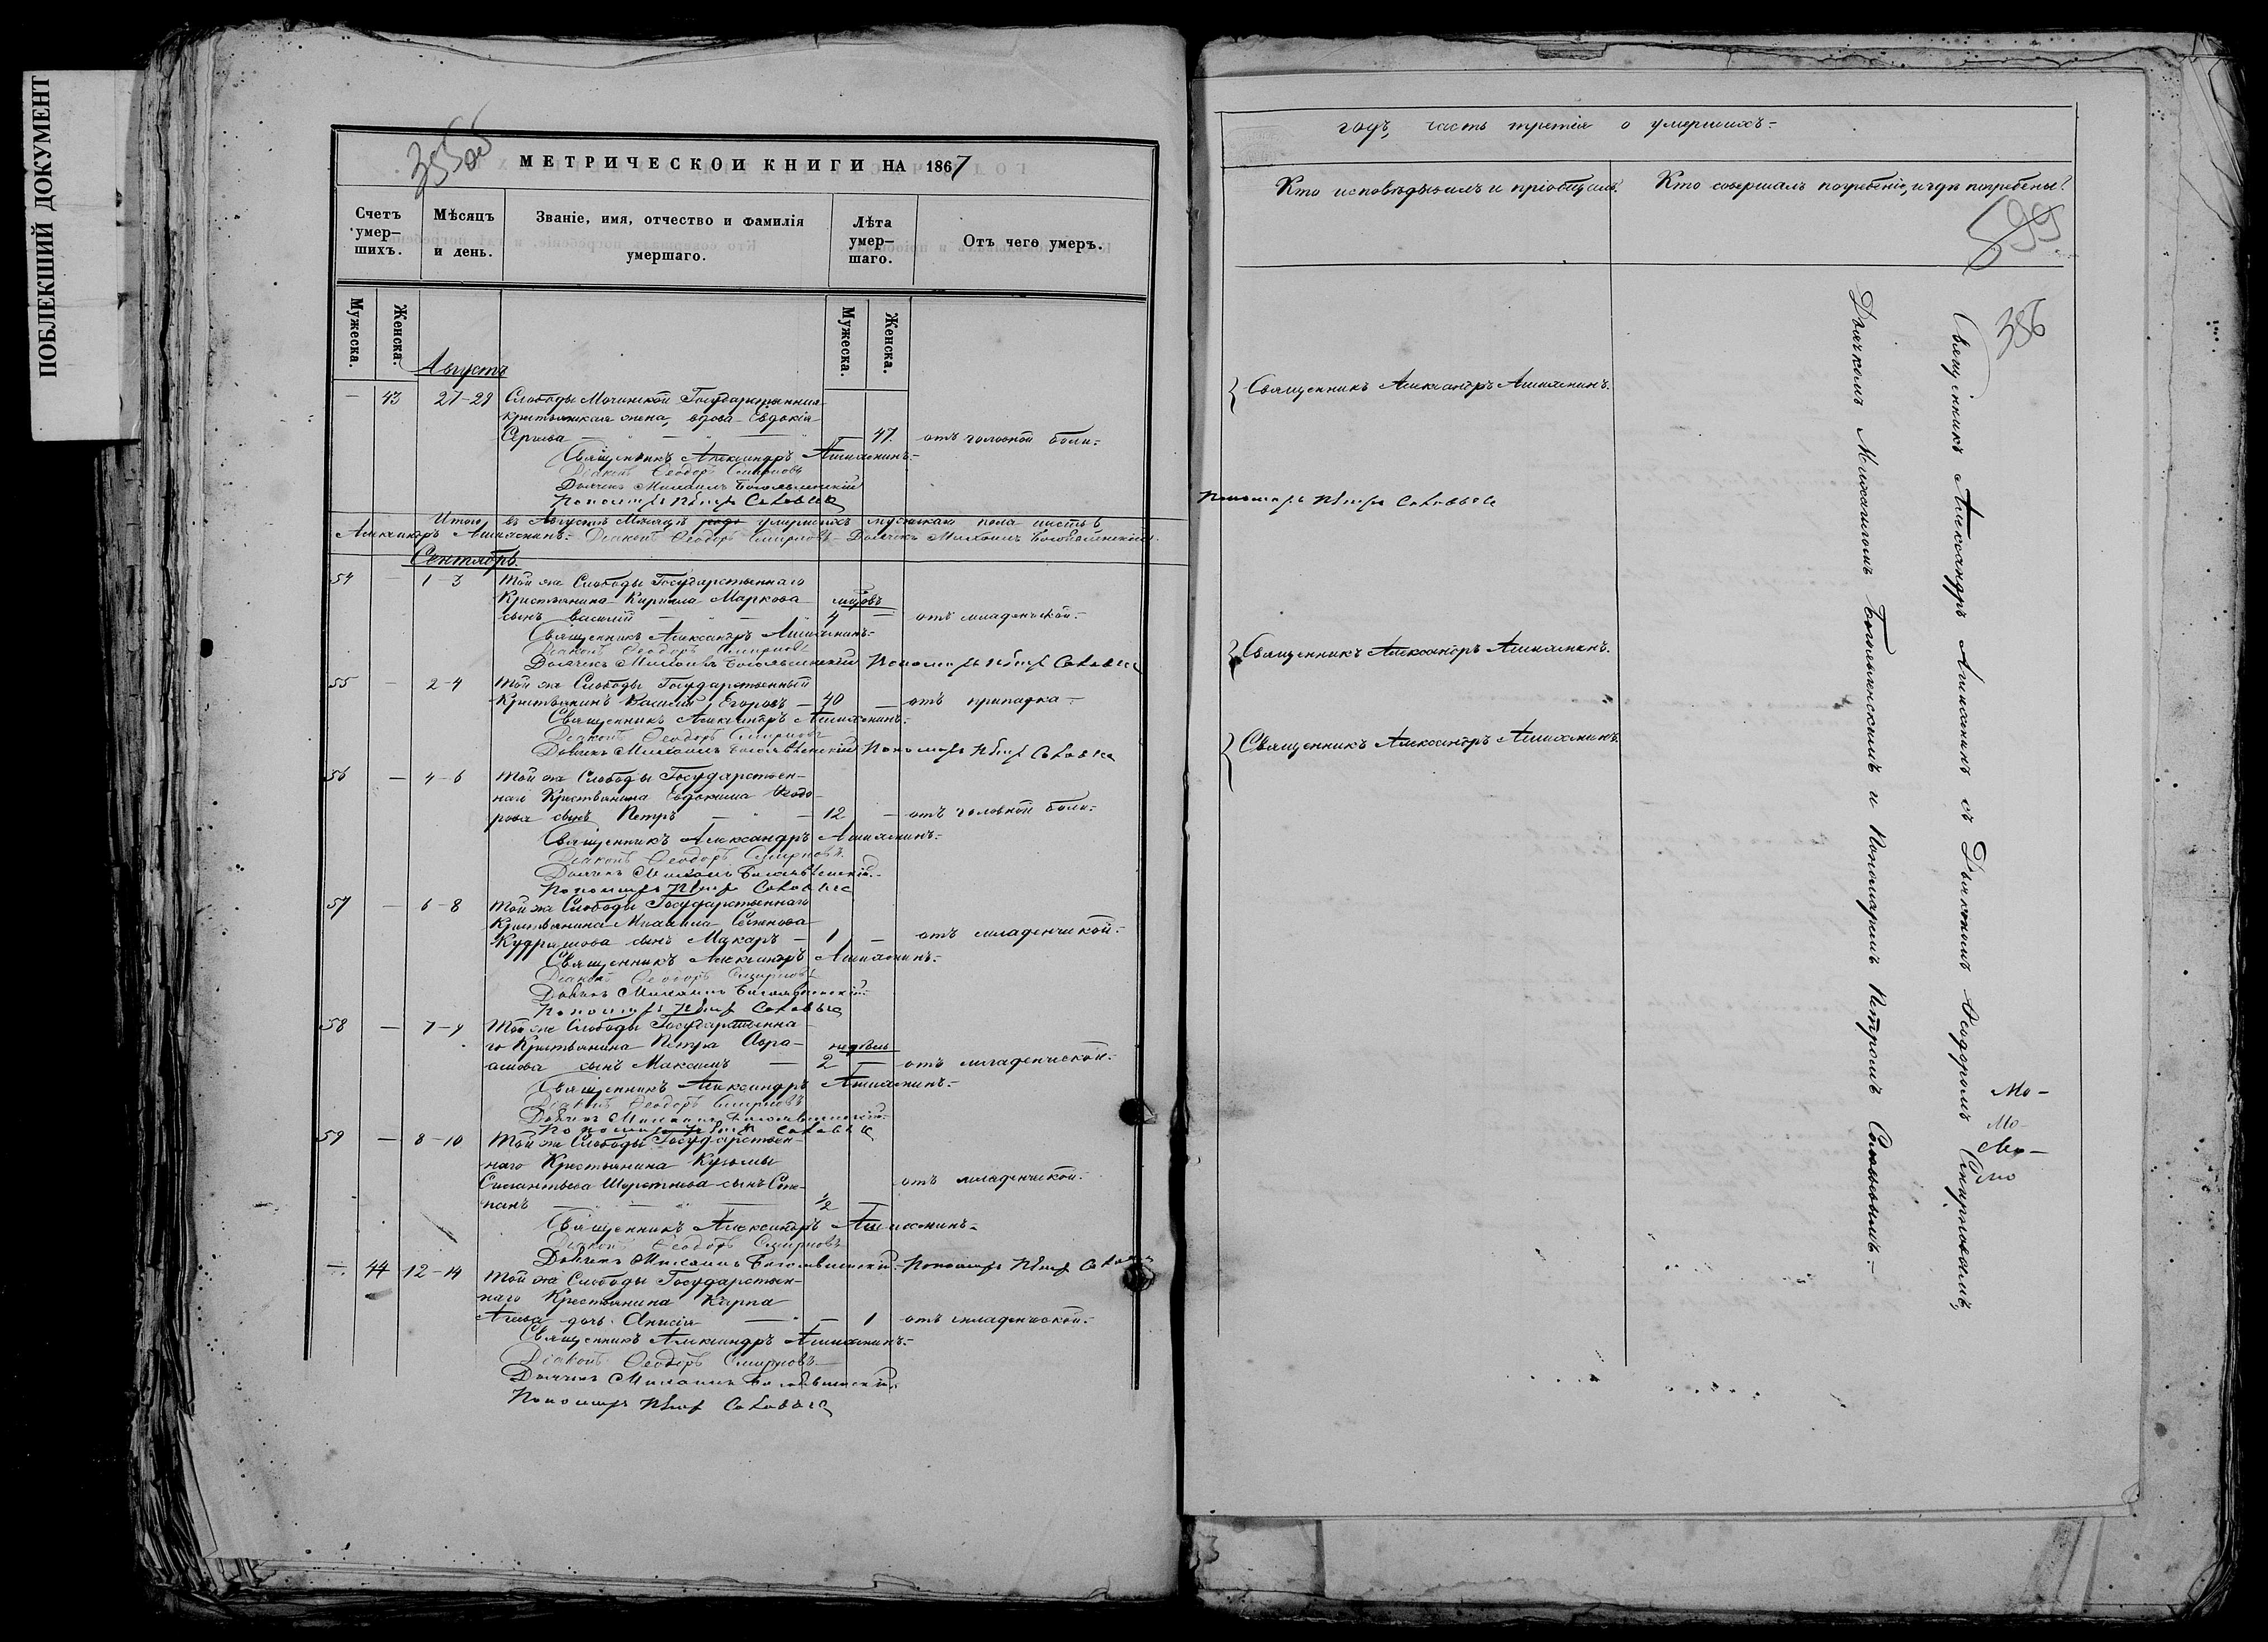 ПОБЛЕКШИЙ ДОКУМЕНТ
МЕТРИЧЕСКОЙ КНИГИ НА 1867
Счетъ умер-шихъ.
Мѣсяцъ и день.
Званіе, имя, отчество и фамилія умершаго.
Лѣта умер-шаго.
Отъ чего умеръ.
Мужеска.
Женска.
Мужеска.
Женска.
Августа
— 43 27-29 Слободы Государственная
крестьянская жена, вдова Евдокія
Сергѣева — 47 отъ головной боли.
Священникъ Александръ
Діаконъ Ѳеодоръ Смирновъ
Дьячекъ Михаилъ Богоявленскій
Пономарь Петръ Соловьевъ
Итого въ Августѣ Мѣсяцѣ умершихъ мужескаго пола шесть 6
Александръ Діаконъ Ѳеодоръ Смирновъ Дьячекъ Михаилъ Богоявленскій
Сентябрь.
54 — 1-3 Той же Слободы Государственнаго
Крестьянина Кирилла Маркова
сынъ Василій 4 — отъ младенческой.
Священникъ Александръ
Діаконъ Ѳеодоръ Смирновъ
Дьячекъ Михаилъ Богоявленскій Пономарь Петръ Соловьевъ
55 — 2-4 Той же Слободы Государственный
Крестьянинъ Василій Егоровъ — 40 — отъ припадка
Священникъ Александръ
Діаконъ Ѳеодоръ Смирновъ
Дьячекъ Михаилъ Богоявленскій Пономарь Петръ Соловьевъ
56 — 4-6 Той же Слободы Государствен-
наго Крестьянина Евдокима Ѳеодо-
рова сынъ Петръ — 12 — отъ головной боли.
Священникъ Александръ
Діаконъ Ѳеодоръ Смирновъ
Дьячекъ Михаилъ Богоявленскій
Пономарь Петръ Соловьевъ
57 — 6-8 Той же Слободы Государственнаго
Крестьянина Михаила Семенова
Кудряшова сынъ Макаръ — 1 — отъ младенческой.
Священникъ Александръ
Діаконъ Ѳеодоръ Смирновъ
Дьячекъ Михаилъ Богоявленскій
Пономарь Петръ Соловьевъ
58 — 7-9 Той же Слободы Государственна-
го Крестьянина Петра Авра-
амова сынъ Максимъ — недѣль 2 — отъ младенческой.
Священникъ Александръ
Діаконъ Ѳеодоръ Смирновъ
Дьячекъ Михаилъ Богоявленскій
Пономарь Петръ Соловьевъ
59 — 8-10 Той же Слободы Государствен-
наго Крестьянина Кузьмы
сынъ Сте-
панъ — ½ — отъ младенческой.
Священникъ Александръ
Діаконъ Ѳеодоръ Смирновъ
Дьячекъ Михаилъ Богоявленскій Пономарь Петръ Соловьевъ
— 44 12-14 Той же Слободы Государствен-
наго Крестьянина Карпа
дочь Анисія — 1 отъ младенческой.
Священникъ Александръ
Діаконъ Ѳеодоръ Смирновъ
Дьячекъ Михаилъ Богоявленскій
Пономарь Петръ Соловьевъ
годъ, часть третія о умершихъ
Кто исповѣдывалъ и пріобщалъ.
Кто совершалъ погребеніе, и гдѣ погребены?
599
386
Священникъ Александръ
Пономарь Петръ Соловьевъ
Священникъ Александръ
Священникъ Александръ
Священникъ Александръ съ Діакономъ Ѳеодоромъ Смирновымъ,
Дьячкомъ Михаиломъ Богоявленскимъ и Пономаремъ Петромъ Соловьевымъ.
Мо-
Мо-